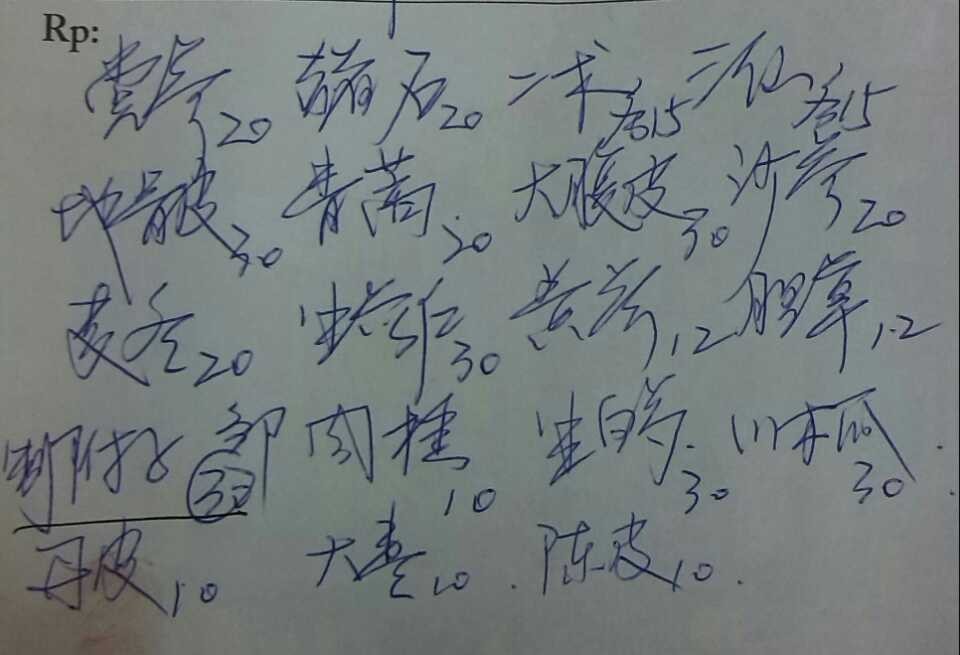 Rp:
党参20 葫芦石20 二术各15 二仙各15
地骨皮30 青蒿20 大腹皮30 沙参20
麦冬20 黄芩12 胆草12
制附子 30 肉桂10 生白芍30 川木瓜30
丹皮10 大枣10 陈皮10